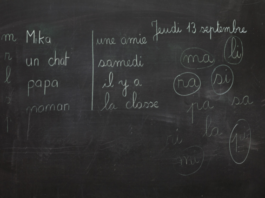 Jeudi 13 septembre
m Mika une amie
r un chat samedi
l papa il y a
maman la classe
ma li
ra si
pa sa
ta